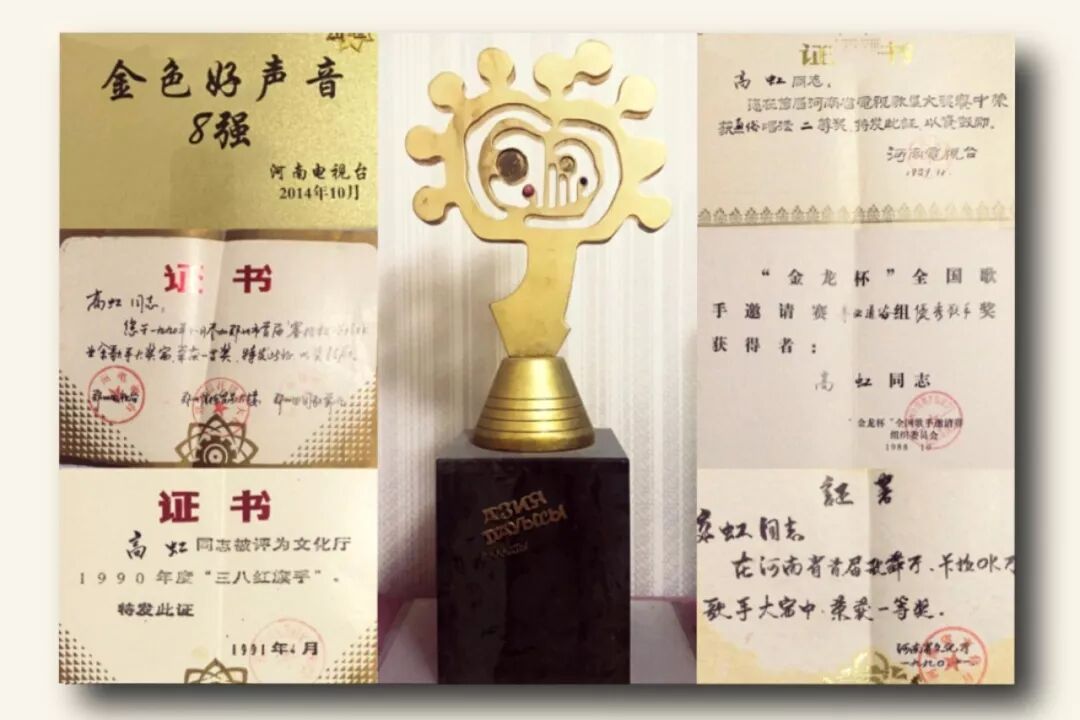 金色好声音
8强
河南电视台
2014年10月
证书
高虹同志，
证书
高虹同志被评为文化厅
1990年度“三八红旗手”。
特发此证
1991年4月
АЗИЯ
ДАУЫСЫ
АЛМАТЫ
证书
高虹同志，
在首届河南省電視歌星大联赛中荣
获通俗唱法二等奖，特发此证，以资鼓励。
河南電视台
“金龙杯”全国歌
手邀请赛 通俗组优秀歌手奖
获得者：
高虹同志
“金龙杯”全国歌手邀请赛
组织委员会
1988 10
証書
高虹同志
在河南省首届歌舞厅、卡拉OK厅
歌手大赛中，荣获一等奖。
河南省文化厅
一九九〇